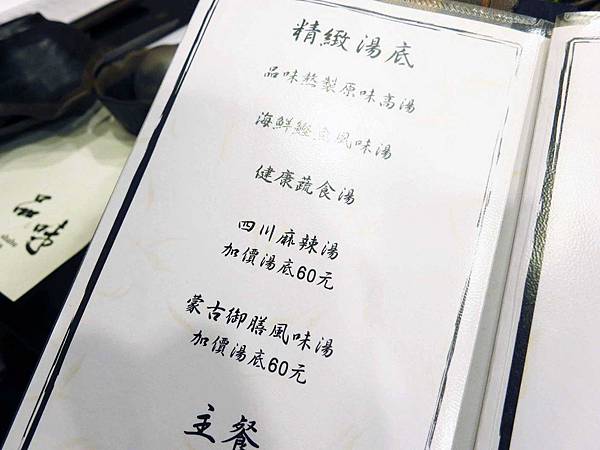 精緻湯底
品味熬製原味高湯
海鮮鰹魚風味湯
健康蔬食湯
四川麻辣湯
加價湯底60元
蒙古御膳風味湯
加價湯底60元
主餐
品味